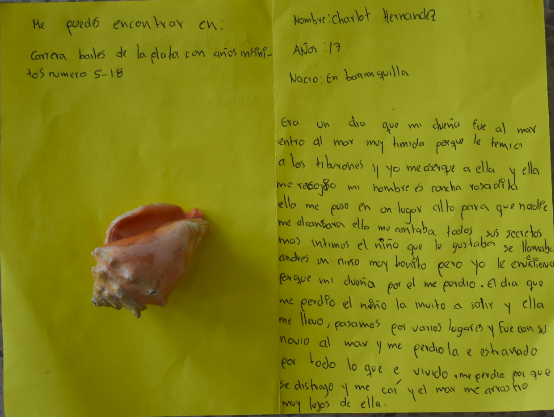 Me puedó encontrar en:
Carrera bailes de la plata con años infini-
tos numero 5-18
Nombre: Charlot Hernandez
Años: 17
Nacio: En barranquilla
Era un dia que mi dueña fue al mar
entro al mar muy timida porque le temia
a los tiburones y yo me aserque a ella y ella
me recogio mi nombre es concha rosadita
ella me puso en un lugar alto para que nadie
me alcansara ella me contaba todos sus secretos
mas intimos el niño que le gustaba se llamaba
andres un niño muy bonito pero yo le envidiava
porque mi dueña por el me perdio. El dia que
me perdio el niño la invito a salir y ella
me llevo, pasamos por varios lugares y fue con su
novio al mar y me perdio la e estrañado
por todo lo que e vivido. me perdio por que
se distrajo y me caí y el mar me arrastro
muy lejos de ella.